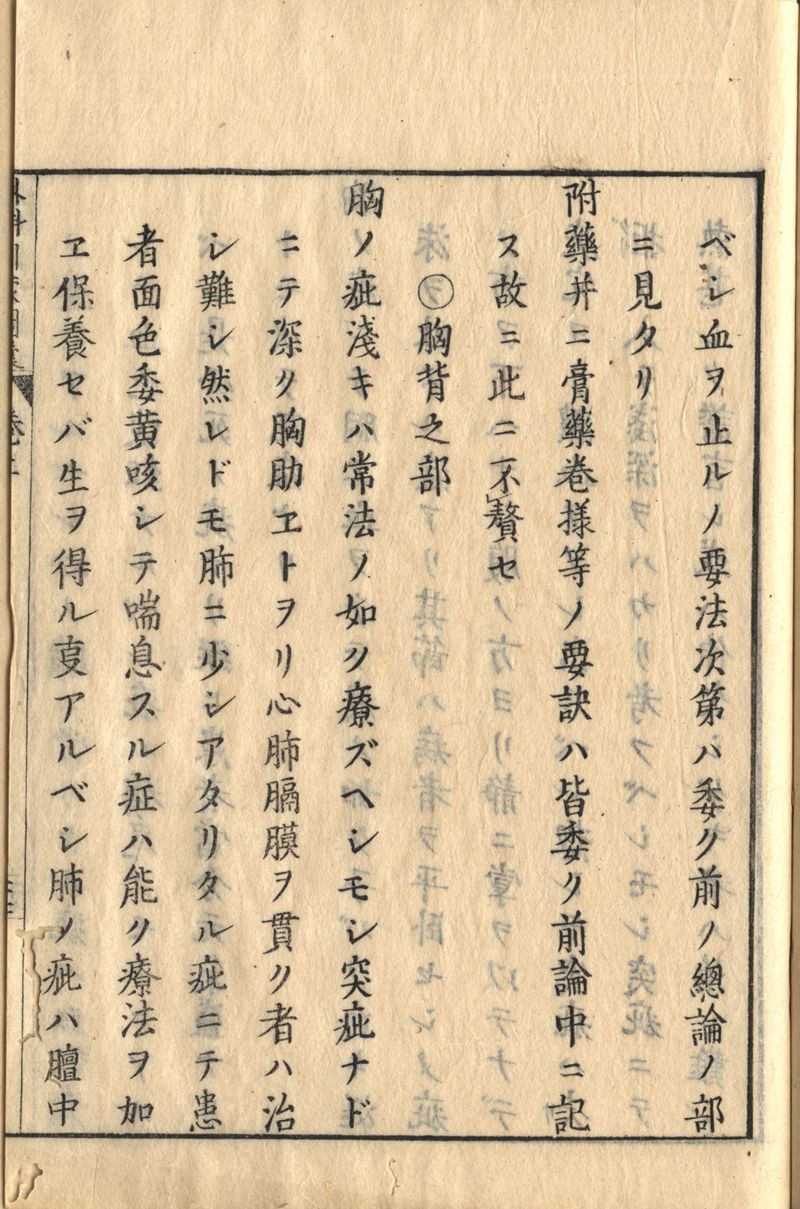 ベシ血ヲ止ルノ要法次第ハ委ク前ノ總論ノ部
ニ見タリ
附藥并ニ膏藥卷様等ノ要訣ハ皆委ク前論中ニ記
ス故ニ此ニ不贅セ
○胸背之部
胸ノ疵淺キハ常法ノ如ク療ズヘシモシ突疵ナド
ニテ深ク胸肋ヱトヲリ心肺膈膜ヲ貫ク者ハ治
シ難シ然レドモ肺ニ少シアタリタル疵ニテ患
者面色委黄咳シテ喘息スル症ハ能ク療法ヲ加
ヱ保養セバ生ヲ得ル叓アルベシ肺ノ疵ハ膻中